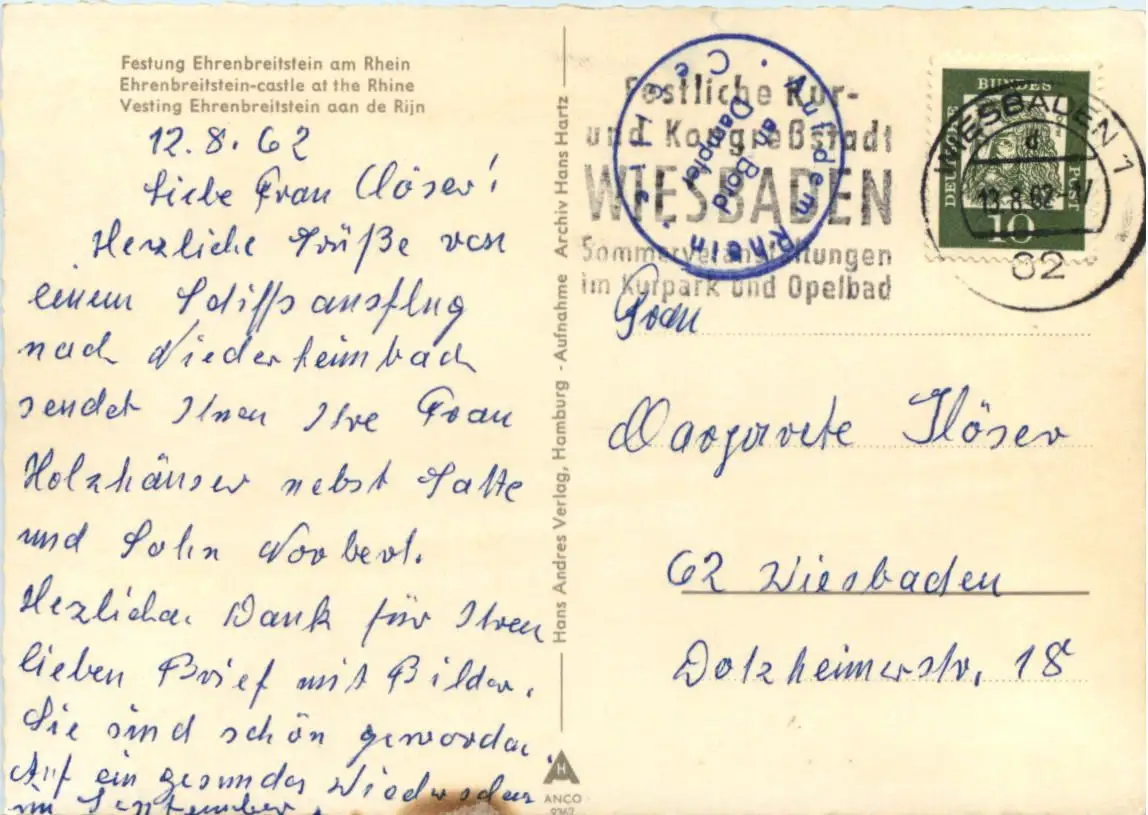 Festung Ehrenbreitstein am Rhein
Ehrenbreitstein-castle at the Rhine
Vesting Ehrenbreitstein aan de Rijn
12.8.62
Liebe Frau Clöser!
Herzliche Grüße von
einem Schiffsausflug
nach Niederheimbach
sendet Ihnen Ihre Frau
Holzhäuser nebst Gatte
und Sohn Norbert.
Herzlichen Dank für Ihren
lieben Brief mit Bilder.
Sie sind schön geworden.
Auf ein gesundes Wiedersehen
im September.
Hans Andres Verlag, Hamburg - Aufnahme Archiv Hans Hartz
H
ANCO
Festliche Kur-
und Kongreßstadt
WIESBADEN
Sommerveranstaltungen
im Kurpark und Opelbad
Auf dem Rhein
an Bord
Dampfer
WIESBADEN 1
d
13.8.62
62
DEUTSCHE
BUNDES
POST
10
Frau
Margarete Klöser
62 Wiesbaden
Dotzheimerstr. 18